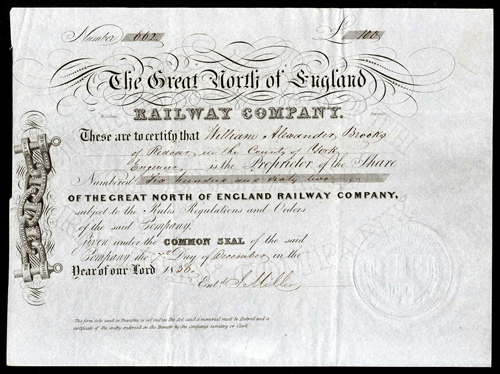 Number 662 £ 100
The Great North of England
RAILWAY COMPANY.
These are to certify that William Alexander Brooks
of Redcar in the County of York
Engineer is the Proprietor of the Share
Numbered Six hundred and sixty two
OF THE GREAT NORTH OF ENGLAND RAILWAY COMPANY,
subject to the Rules Regulations and Orders
of the said Company.
Given under the COMMON SEAL of the said
Company the 7th Day of December in the
Year of our Lord 1836.
Entd. S Miller